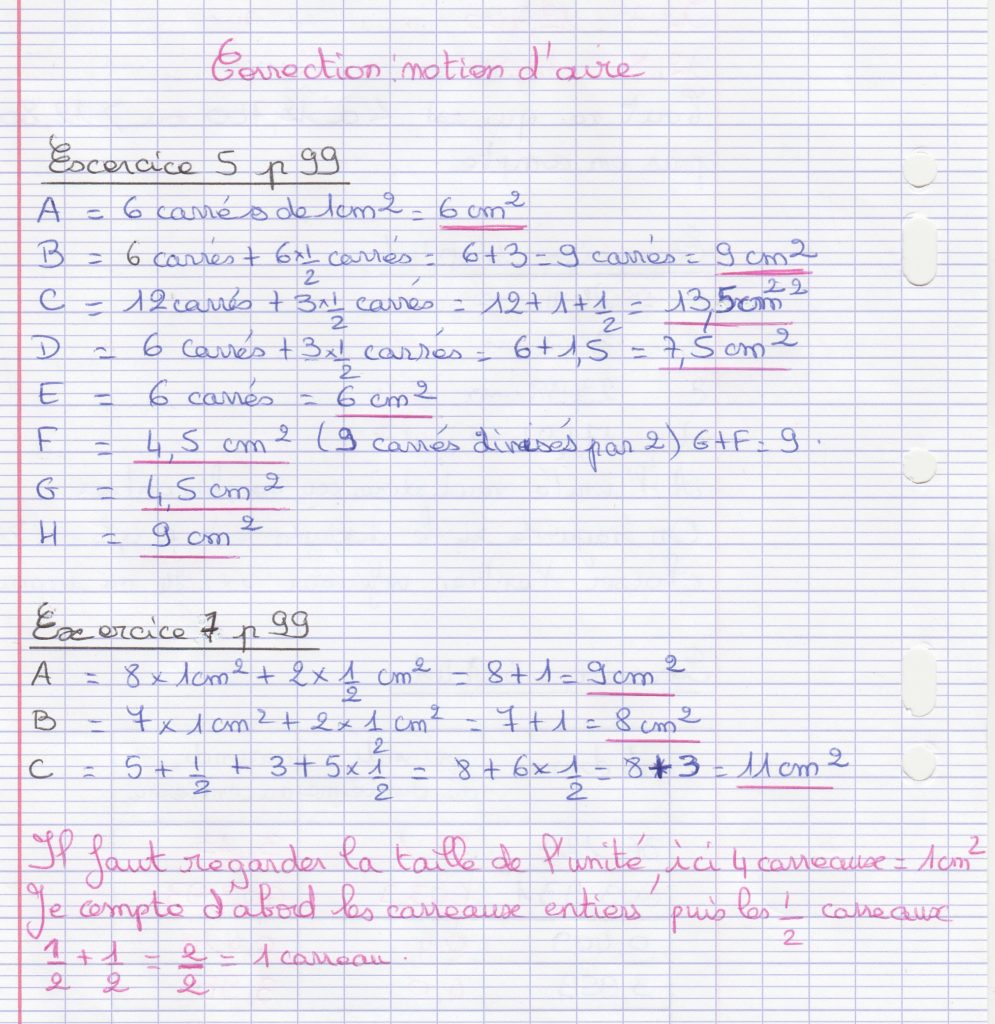 Correction : notion d'aire
Excercice 5 p 99
A = 6 carrés de 1cm² = 6 cm²
B = 6 carrés + 6×1/2 carrés = 6+3 = 9 carrés = 9 cm²
C = 12 carrés + 3×1/2 carrés = 12+1+1/2 = 13,5cm²²
D = 6 carrés + 3×1/2 carrés = 6+1,5 = 7,5 cm²
E = 6 carrés = 6 cm²
F = 4,5 cm² (9 carrés divisés par 2) G+F = 9.
G = 4,5 cm²
H = 9 cm²
Exercice 7 p 99
A = 8 × 1cm² + 2 × 1/2 cm² = 8+1 = 9cm²
B = 7 × 1cm² + 2 × 1/2 cm² = 7+1 = 8cm²
C = 5 + 1/2 + 3 + 5×1/2 = 8 + 6×1/2 = 8+3 = 11cm²
Il faut regarder la taille de l'unité, ici 4 carreaux = 1cm²
Je compte d'abord les carreaux entiers puis les 1/2 carreaux
1/2 + 1/2 = 2/2 = 1 carreau.